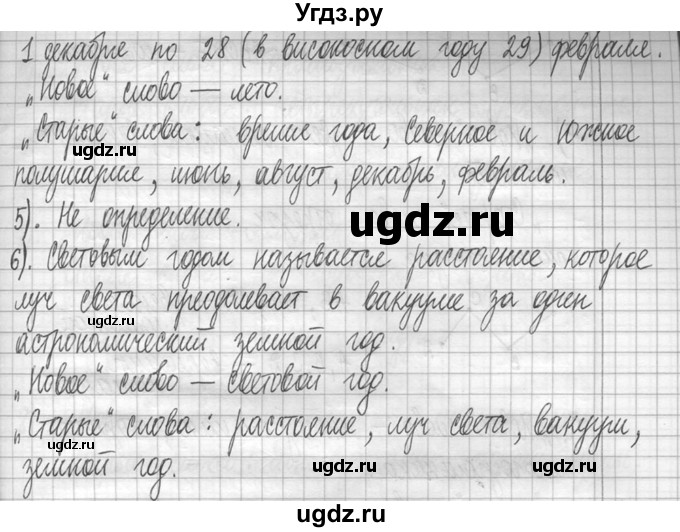 Угдз.ру
1 декабря по 28 (в високосном году 29) февраля.
„Новое“ слово — лето.
„Старые“ слова: время года, Северное и Южное
ugdz.ru
полушарие, июнь, август, декабрь, февраль.
5). Не определение.
ugdz.ru
6). Световым годом называется расстояние, которое
луч света преодолевает в вакууме за один
ugdz.ru
астрономический земной год.
„Новое“ слово — световой год.
„Старые“ слова: расстояние, луч света, вакуум,
ugdz.ru
земной год.
ugdz.ru
ugdz.ru